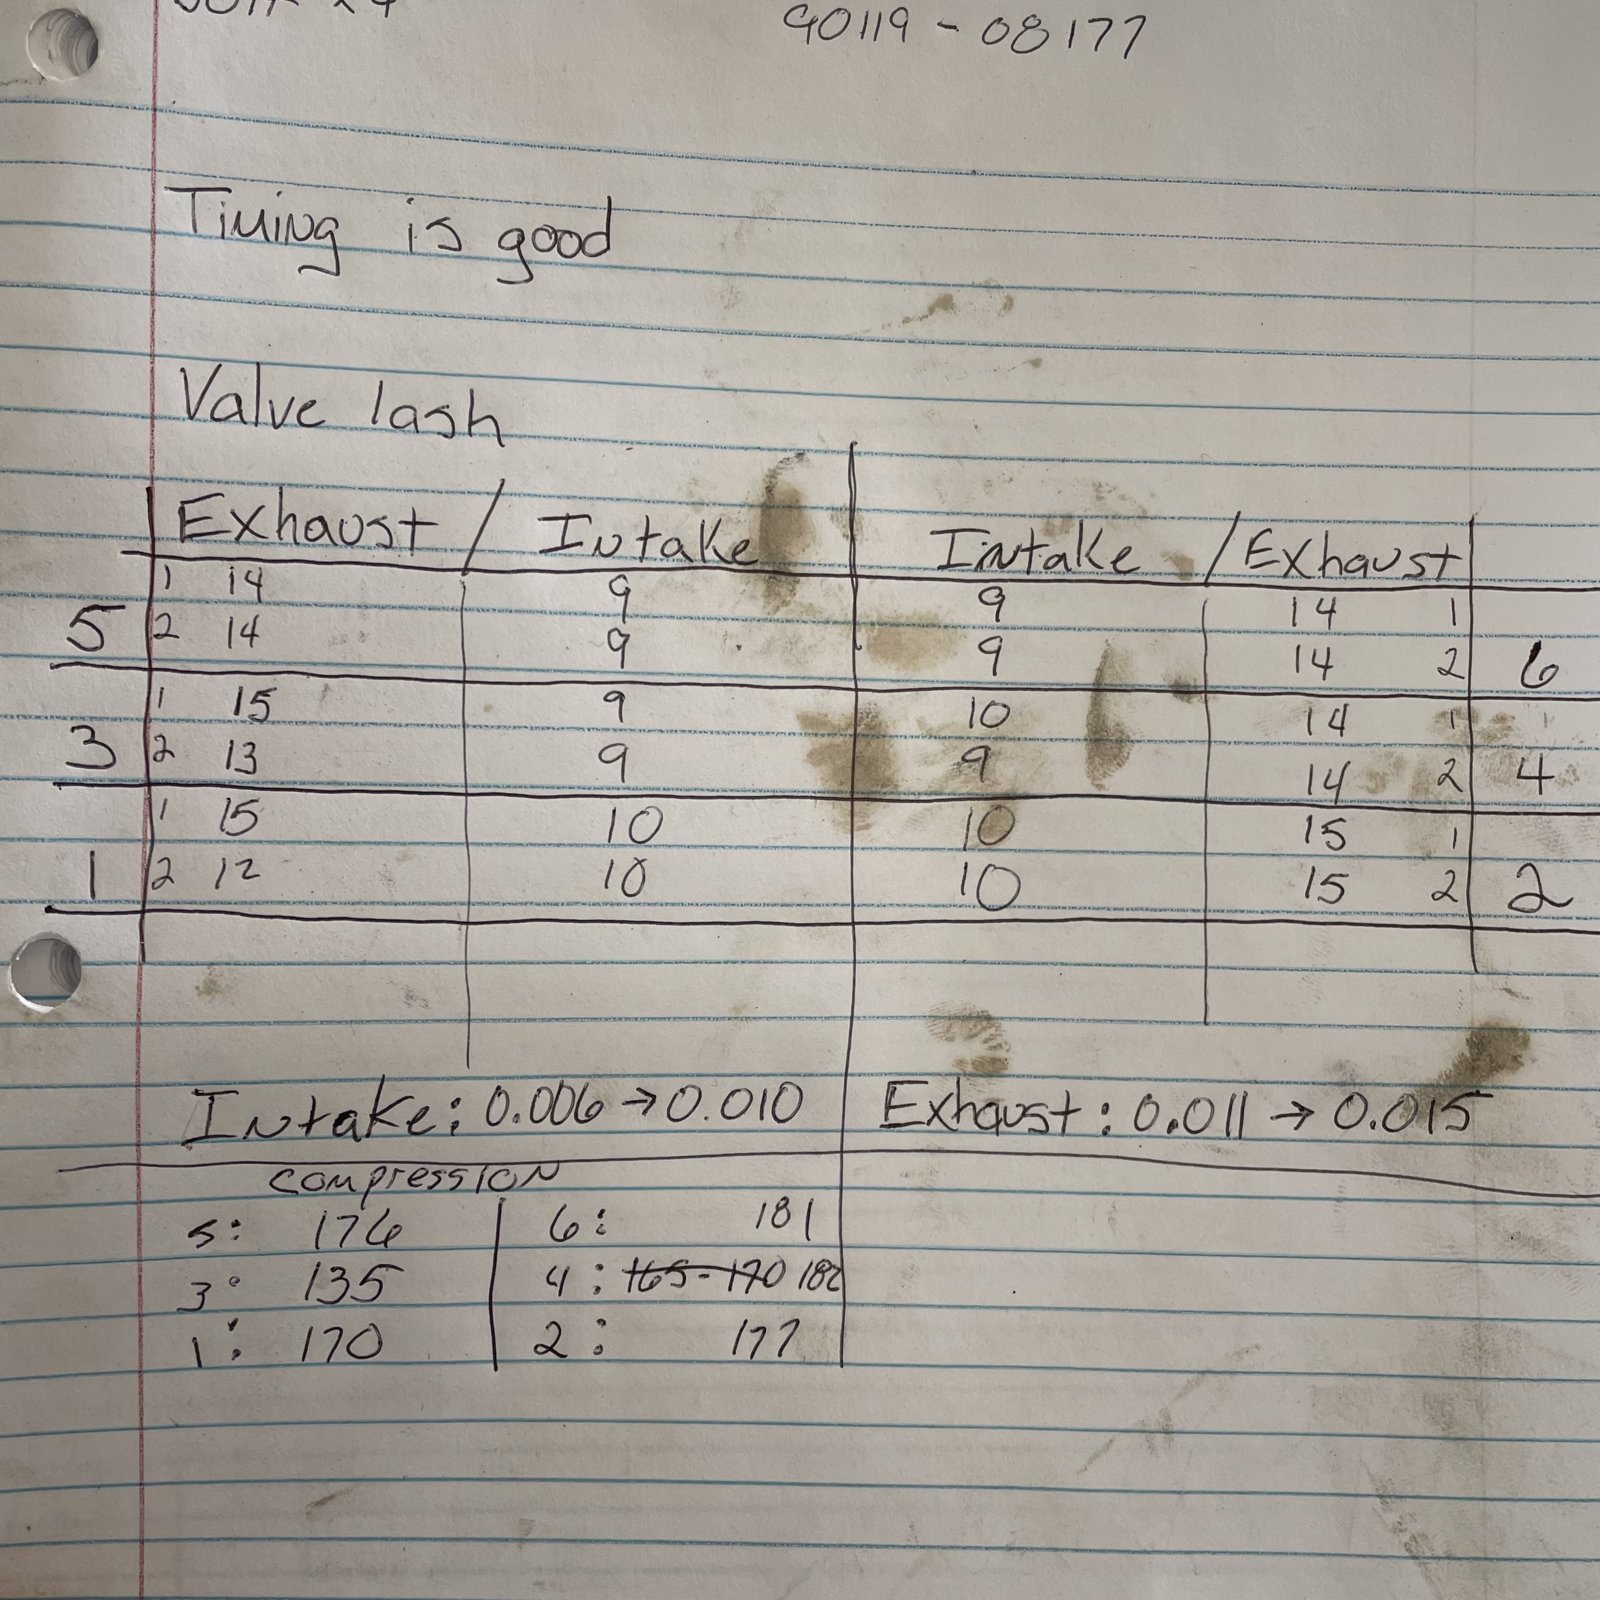 90119-08177
Timing is good
Valve lash
Exhaust / Intake Intake / Exhaust
1 14 9 9 14 1
5 2 14 9 9 14 2 6
1 15 9 10 14 1
3 2 13 9 9 14 2 4
1 15 10 10 15 1
1 2 12 10 10 15 2 2
Intake: 0.006 → 0.010 Exhaust: 0.011 → 0.015
compression
5: 176 6: 181
3: 135 4: 165-170 182
1: 170 2: 177